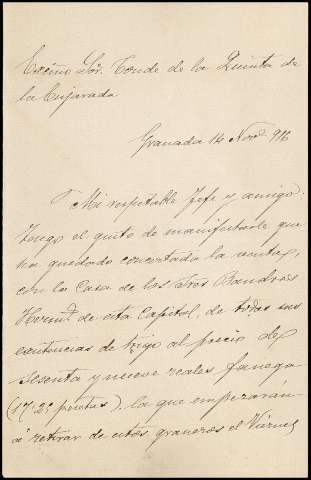 Excmo Sor. Conde de la Quinta de
la Enjarada
Granada 14 Novbe 916
Mi respetable Jefe y amigo:
Tengo el gusto de manifestarle que
ha quedado concertada la venta,
con la Casa de los Sres
Hermos de esta Capital, de todas sus
existencias de trigo al precio de
sesenta y nueve reales fanega
(17'25 pesetas). la que empezarán
á retirar de estos graneros el Viernes